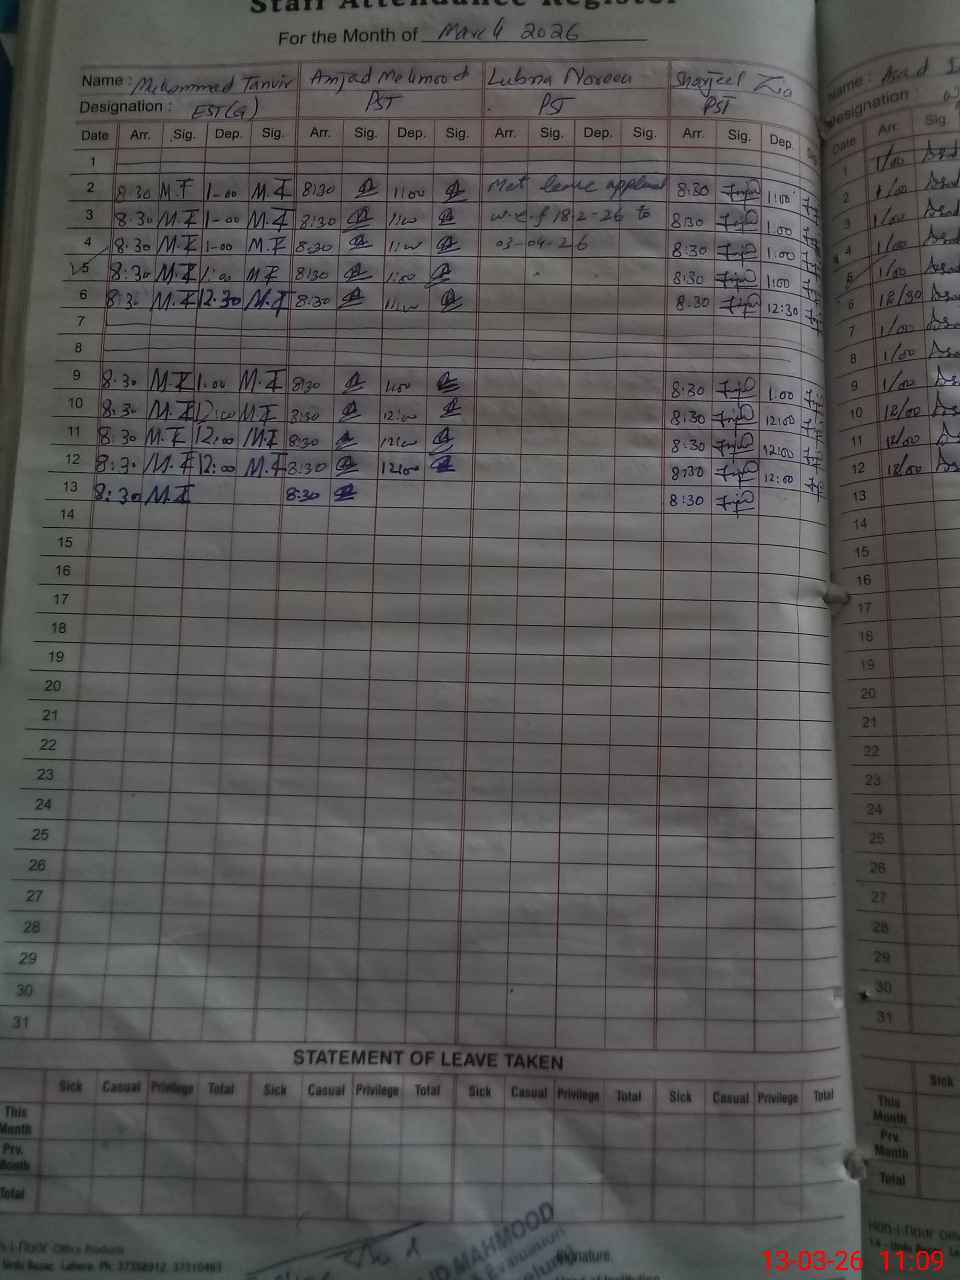 Staff Attendance Register
For the Month of March 2026
Name : Muhammad Tanvir Amjad Mehmood Lubna Noreen Sharjeel Zia
Designation : EST(G) PST PST PST
Date Arr. Sig. Dep. Sig. Arr. Sig. Dep. Sig. Arr. Sig. Dep. Sig. Arr. Sig. Dep.
1
2 8:30 M.T 1-00 M.T 8:30 1:00 Met leave applied 8:30 1:00
3 8:30 M.T 1-00 M.T 8:30 1:00 w.e.f 18-2-26 to 8:30 1:00
4 8:30 M.T 1-00 M.T 8:30 1:00 03-04-26 8:30 1:00
5 8:30 M.T 1:00 M.T 8:30 1:00 8:30 1:00
6 8:30 M.T 12:30 M.T 8:30 8:30 12:30
7
8
9 8:30 M.T 1:00 M.T 8:30 1:00 8:30 1:00
10 8:30 M.T 12:00 M.T 8:30 12:00 8:30 12:00
11 8:30 M.T 12:00 M.T 8:30 12:00 8:30 12:00
12 8:30 M.T 12:00 M.T 8:30 12:00 8:30 12:00
13 8:30 M.T 8:30 8:30
14
15
16
17
18
19
20
21
22
23
24
25
26
27
28
29
30
31
STATEMENT OF LEAVE TAKEN
Sick Casual Privilege Total Sick Casual Privilege Total Sick Casual Privilege Total Sick Casual Privilege Total
This Month
Prv. Month
Total
MAHMOOD
Signature
Name : Asad
Designation :
Date Arr. Sig.
1 1/00
2 1/00
3 1/00
4 1/00
5 1/00
6 12/30
7 1/00
8 1/00
9 1/00
10 12/00
11 12/00
12 12/00
13
14
15
16
17
18
19
20
21
22
23
24
25
26
27
28
29
30
31
Sick
This Month
Prv. Month
Total
13-03-26 11:09